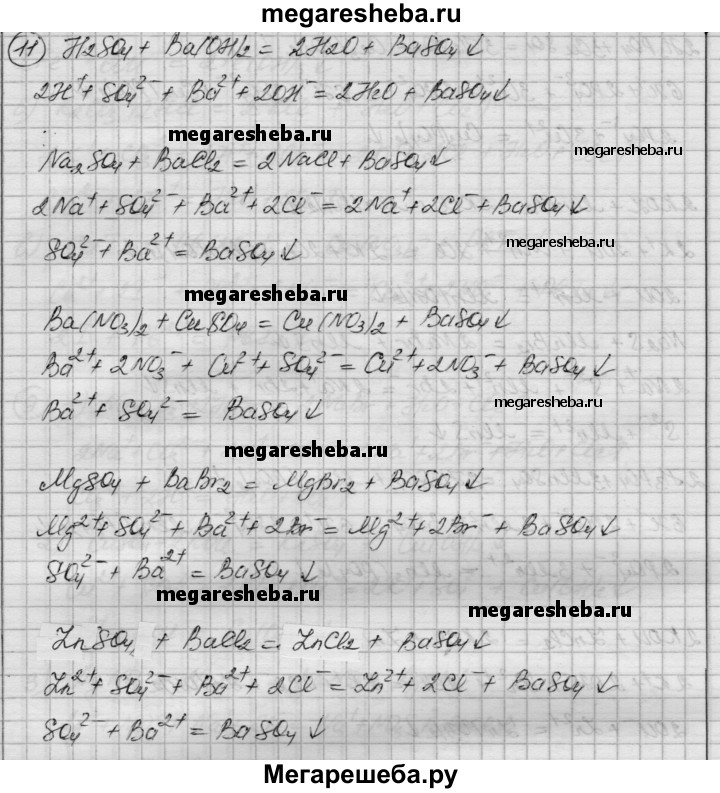 megaresheba.ru
11 H2SO4 + Ba(OH)2 = 2H2O + BaSO4↓
2H⁺ + SO4²⁻ + Ba²⁺ + 2OH⁻ = 2H2O + BaSO4↓
megaresheba.ru
megaresheba.ru
Na2SO4 + BaCl2 = 2NaCl + BaSO4↓
2Na⁺ + SO4²⁻ + Ba²⁺ + 2Cl⁻ = 2Na⁺ + 2Cl⁻ + BaSO4↓
megaresheba.ru
SO4²⁻ + Ba²⁺ = BaSO4↓
megaresheba.ru
Ba(NO3)2 + CuSO4 = Cu(NO3)2 + BaSO4↓
Ba²⁺ + 2NO3⁻ + Cu²⁺ + SO4²⁻ = Cu²⁺ + 2NO3⁻ + BaSO4↓
megaresheba.ru
Ba²⁺ + SO4²⁻ = BaSO4↓
megaresheba.ru
MgSO4 + BaBr2 = MgBr2 + BaSO4↓
Mg²⁺ + SO4²⁻ + Ba²⁺ + 2Br⁻ = Mg²⁺ + 2Br⁻ + BaSO4↓
SO4²⁻ + Ba²⁺ = BaSO4↓
megaresheba.ru
megaresheba.ru
ZnSO4 + BaCl2 = ZnCl2 + BaSO4↓
Zn²⁺ + SO4²⁻ + Ba²⁺ + 2Cl⁻ = Zn²⁺ + 2Cl⁻ + BaSO4↓
SO4²⁻ + Ba²⁺ = BaSO4↓
Мегарешеба.ру